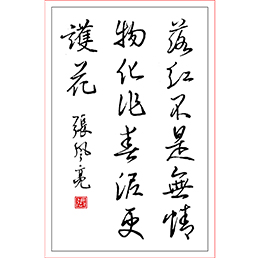 落红不是無情
物化作春泥更
護花
張风亮